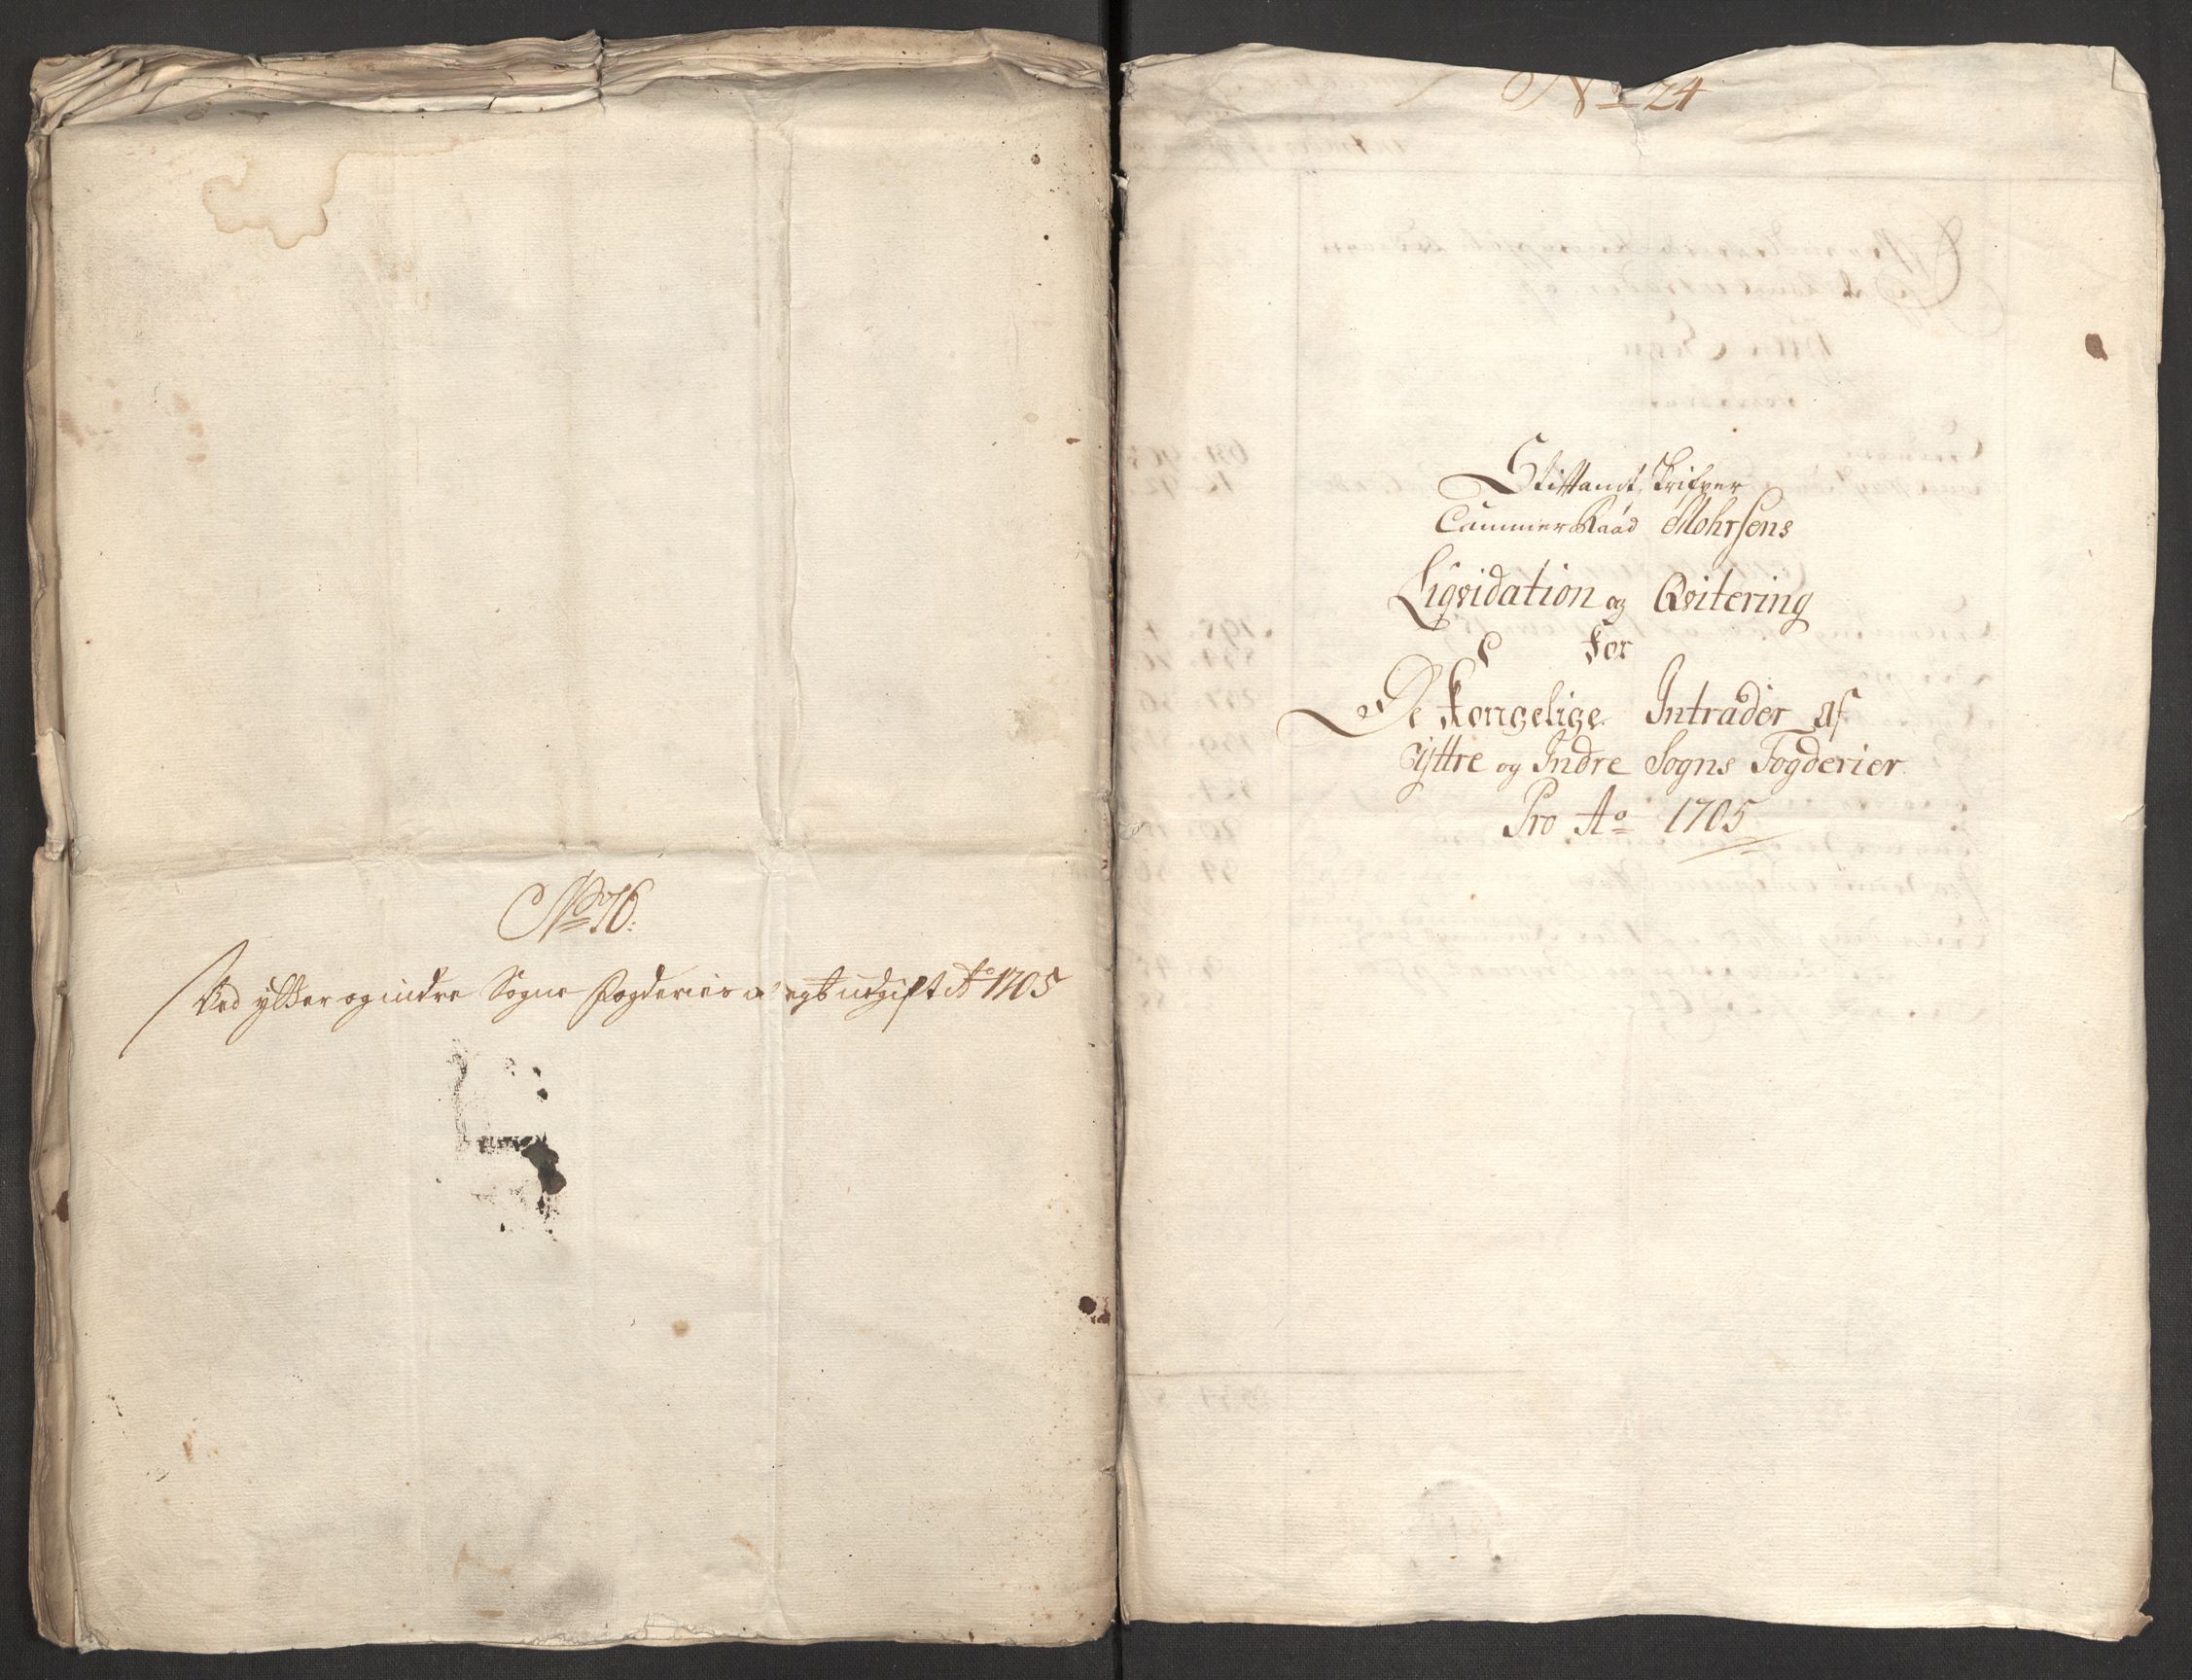 No 76.
Ved ytter og indre Sogns fogderies udgift Ao 1705
No 24
Stiftamt Skrifver
Cammer Raad Mohrsens
Liqvidation og Qvitering
for
De Kongelige Intrader af
Yttre og Indre Sogns Fogderier
Pro Ao 1705